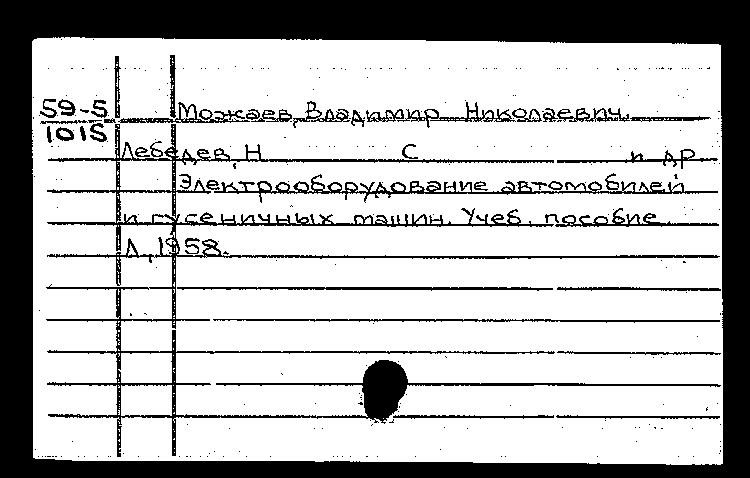 59-5
1015
Можаев, Владимир Николаевич.
Лебедев, Н С и др.
Электрооборудование автомобилей
и гусеничных машин. Учеб. пособие.
Л., 1958.